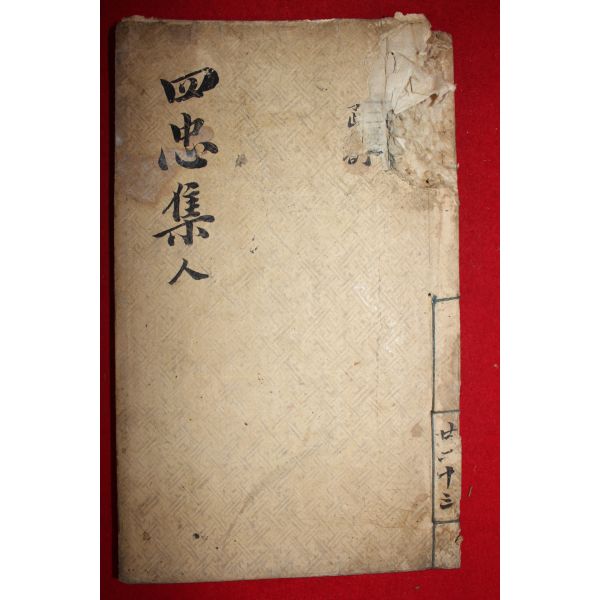 四忠集 人
廿一 十三